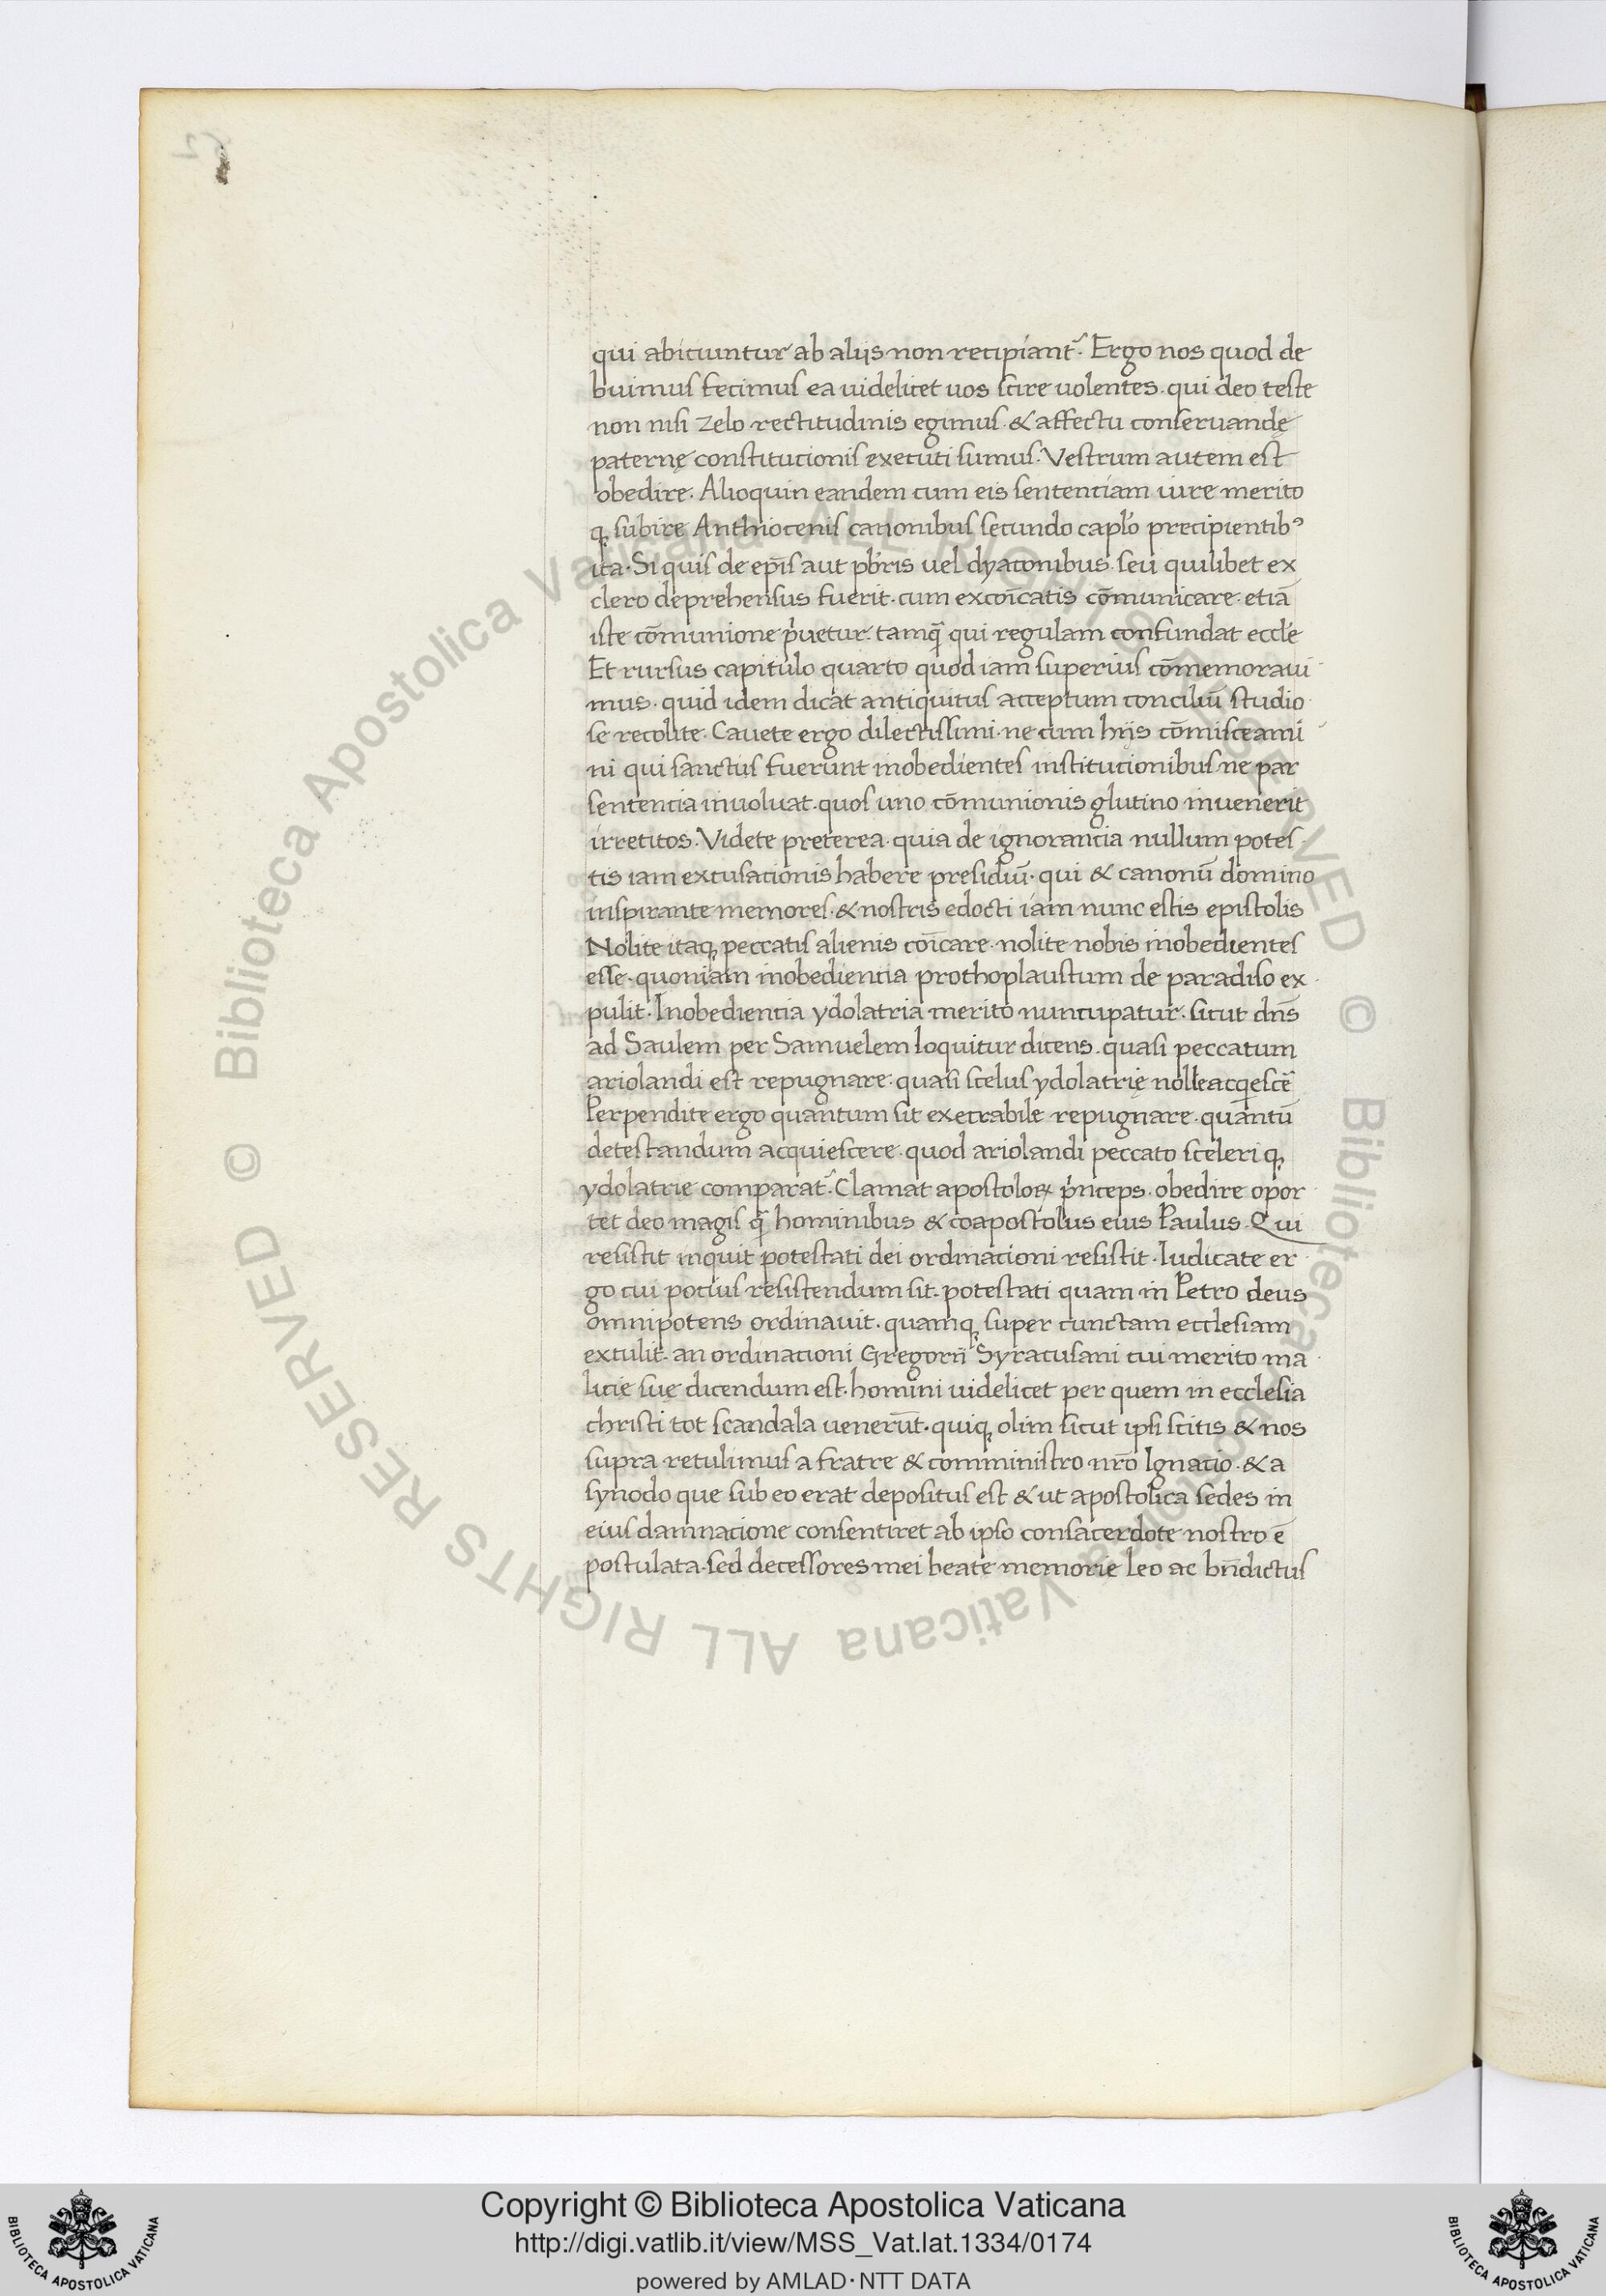 qui abiciuntur ab aliis non recipiant᷑. Ergo nos quod de
buimus fecimus ea uidelicet uos scire uolentes. qui deo teste
non nisi zelo rectitudinis egimus. & affectu conseruandę
paternę constitucionis executi sumus. Vestrum autem est
obedire. Alioquin eandem cum eis sententiam iure merito
q, subire Anthiocenis canonibus secundo capl̓o precipientibꝰ
ita. Si quis de ep̄is aut pb̓ris uel dyaconibus seu quilibet ex
clero deprehensus fuerit. cum excoīcatis cōmunicare. etiā
iste cōmunione p̓uetur. tamq̄ qui regulam confundat eccl̓e
Et rursus capitulo quarto quod iam superius cōmemoraui
mus. quid idem dicat antiquitus acceptum conciliū studio
se recolite. Cauete ergo dilectissimi. ne cum hijs cōmisceami
ni qui sanctis fuerunt inobedientes institucionibus ne par
sentencia inuoluat. quos uno cōmunionis glutino inuenerit
irretitos. Videte preterea. quia de ignorancia nullum potes
tis iam excusacionis habere presidiū. qui & canonū domino
inspirante memores. & nostris edocti iam nunc estis epistolis
Nolite itaq, peccatis alienis coīcare. nolite nobis inobedientes
esse. quoniam inobediencia prothoplaustum de paradiso ex
pulit. Inobediencia ydolatria merito nuncupatur. sicut dn̄s
ad Saulem per Samuelem loquitur dicens. quasi peccatum
ariolandi est repugnare. quasi scelus ydolatrię nolle acq̓escē
Perpendite ergo quantum sit execrabile repugnare. quantū
detestandum acquiescere. quod ariolandi peccato sceleri q,
ydolatrie comparat᷑. Clamat apostoloꝝ p̓nceps. obedire opor
tet deo magis q̄ hominibus & coapostolus eius Paulus. Qui
resistit inquit potestati dei ordinacioni resistit. Iudicate er
go cui potius resistendum sit. potestati quam in Petro deus
omnipotens ordinauit. quamq, super cunctam ecclesiam
extulit. an ordinacioni Gregorii Syracusani cui merito ma
licię suę dicendum est. homini uidelicet per quem in ecclesia
christi tot scandala uenerūt. quiq, olim sicut ipsi scitis & nos
supra retulimus a fratre & comministro nr̄o Ignacio. & a
synodo que sub eo erat depositus est & ut apostolica sedes in
eius damnacione consentiret ab ipso consacerdote nostro ē
postulata. sed decessores mei beate memorie Leo ac bn̄dictus
Copyright © Biblioteca Apostolica Vaticana
http://digi.vatlib.it/view/MSS_Vat.lat.1334/0174
powered by AMLAD·NTT DATA
BIBLIOTECA APOSTOLICA VATICANA
BIBLIOTECA APOSTOLICA VATICANA
© Biblioteca Apostolica Vaticana ALL RIGHTS RESERVED
© Biblioteca Apostolica Vaticana ALL RIGHTS RESERVED